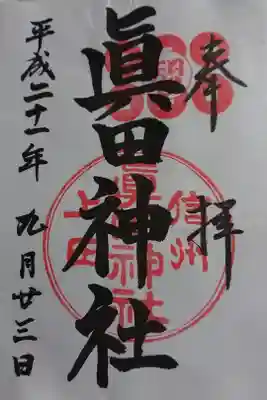 奉拝
眞田神社
信州
眞田神社
上田
平成二十一年 九月廿三日